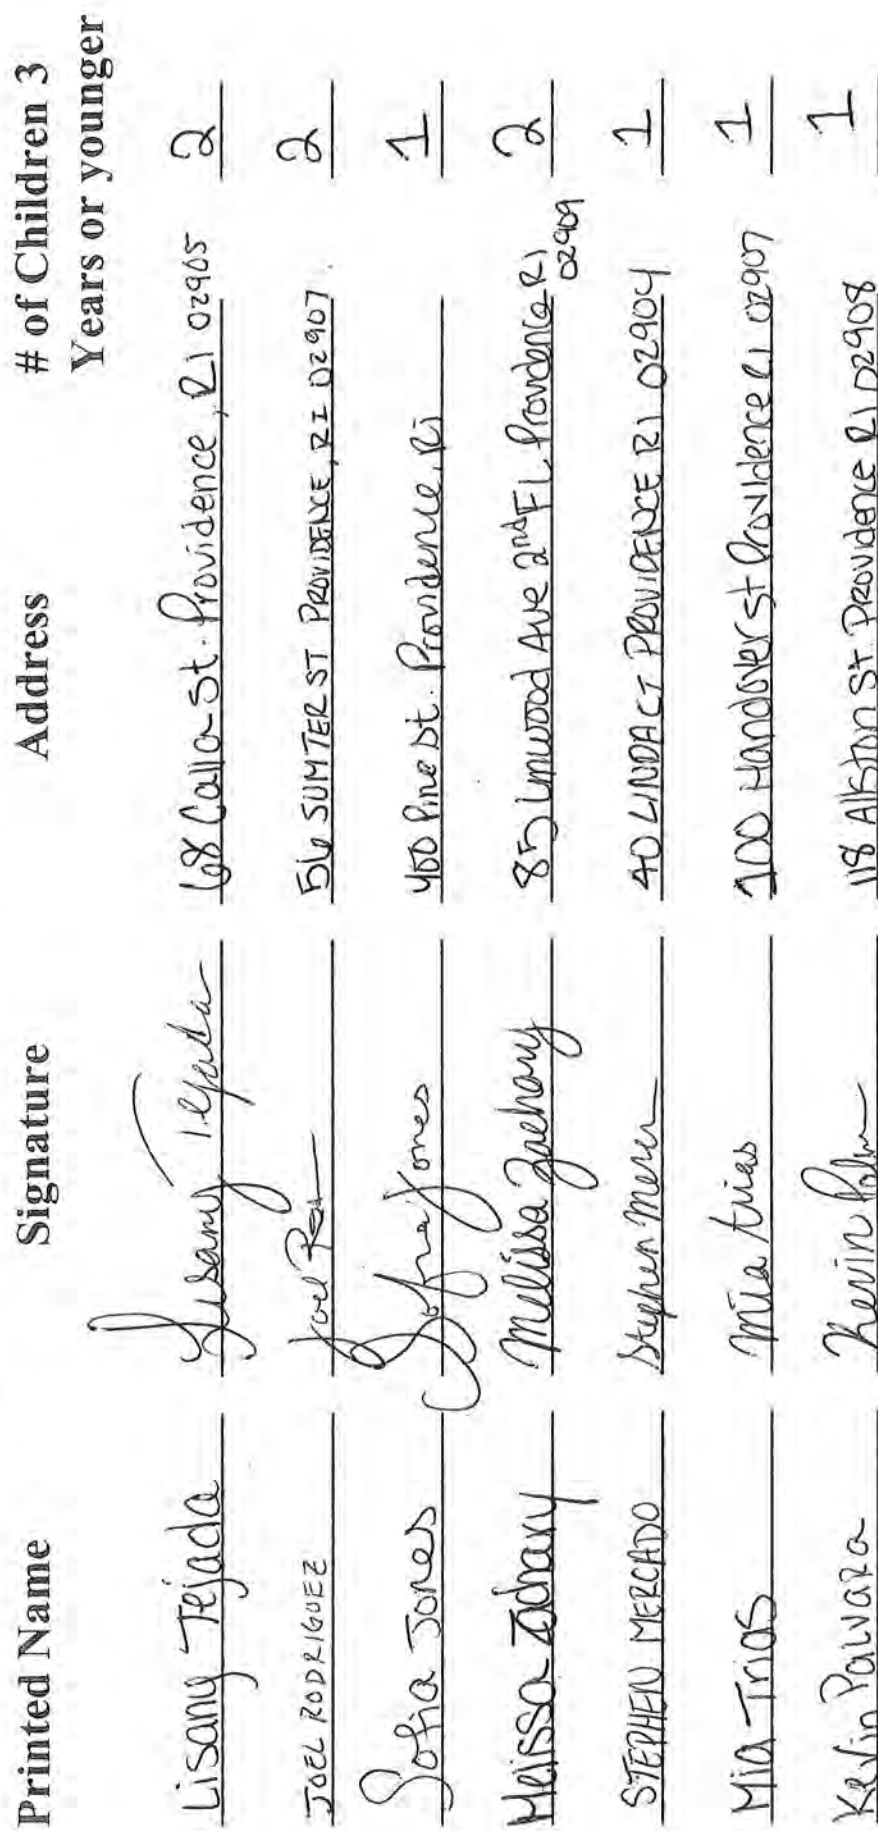 Printed Name Signature Address # of Children 3 Years or younger
Lisany Tejada Lisany Tejada 68 Calla St. Providence, RI 02905 2
JOEL RODRIGUEZ Joel 56 SUMTER ST PROVIDENCE, RI 02907 2
Sofia Jones Sofia Jones 400 Pine St. Providence, Ri 1
Melissa Zachary Melissa Zachary 85 Linwood Ave 2nd FL Providence RI 02909 2
STEPHEN MERCADO Stephen 40 LINDA CT PROVIDENCE RI 02904 1
Mia Trias Mia Trias 100 Handover st Providence RI 02907 1
Kevin Kevin 118 Alston St Providence RI 02908 1